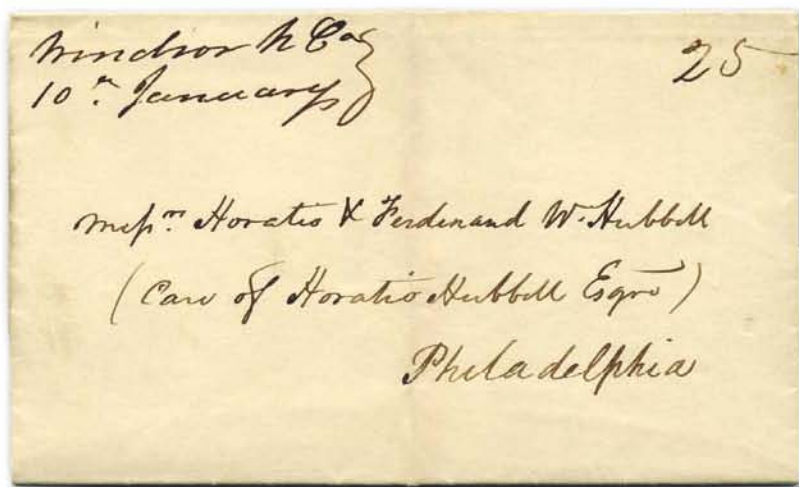 Windsor N Ca 25
10th January
Messrs Horatio & Ferdinand W. Hubbell
(Care of Horatio Hubbell Esqre)
Philadelphia